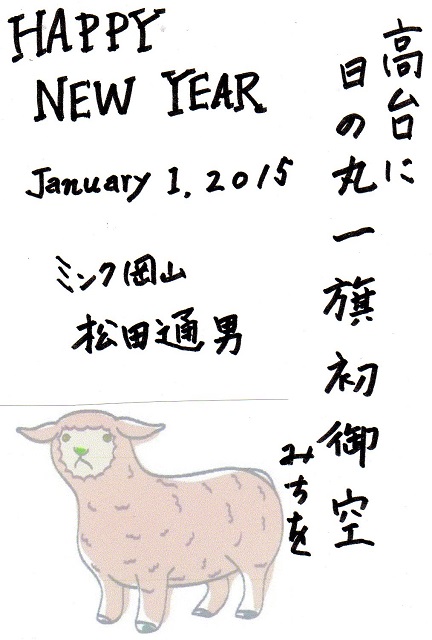 HAPPY
NEW YEAR
January 1, 2015
ミンク岡山
松田通男
高台に
日の丸一旗初御空
みちを